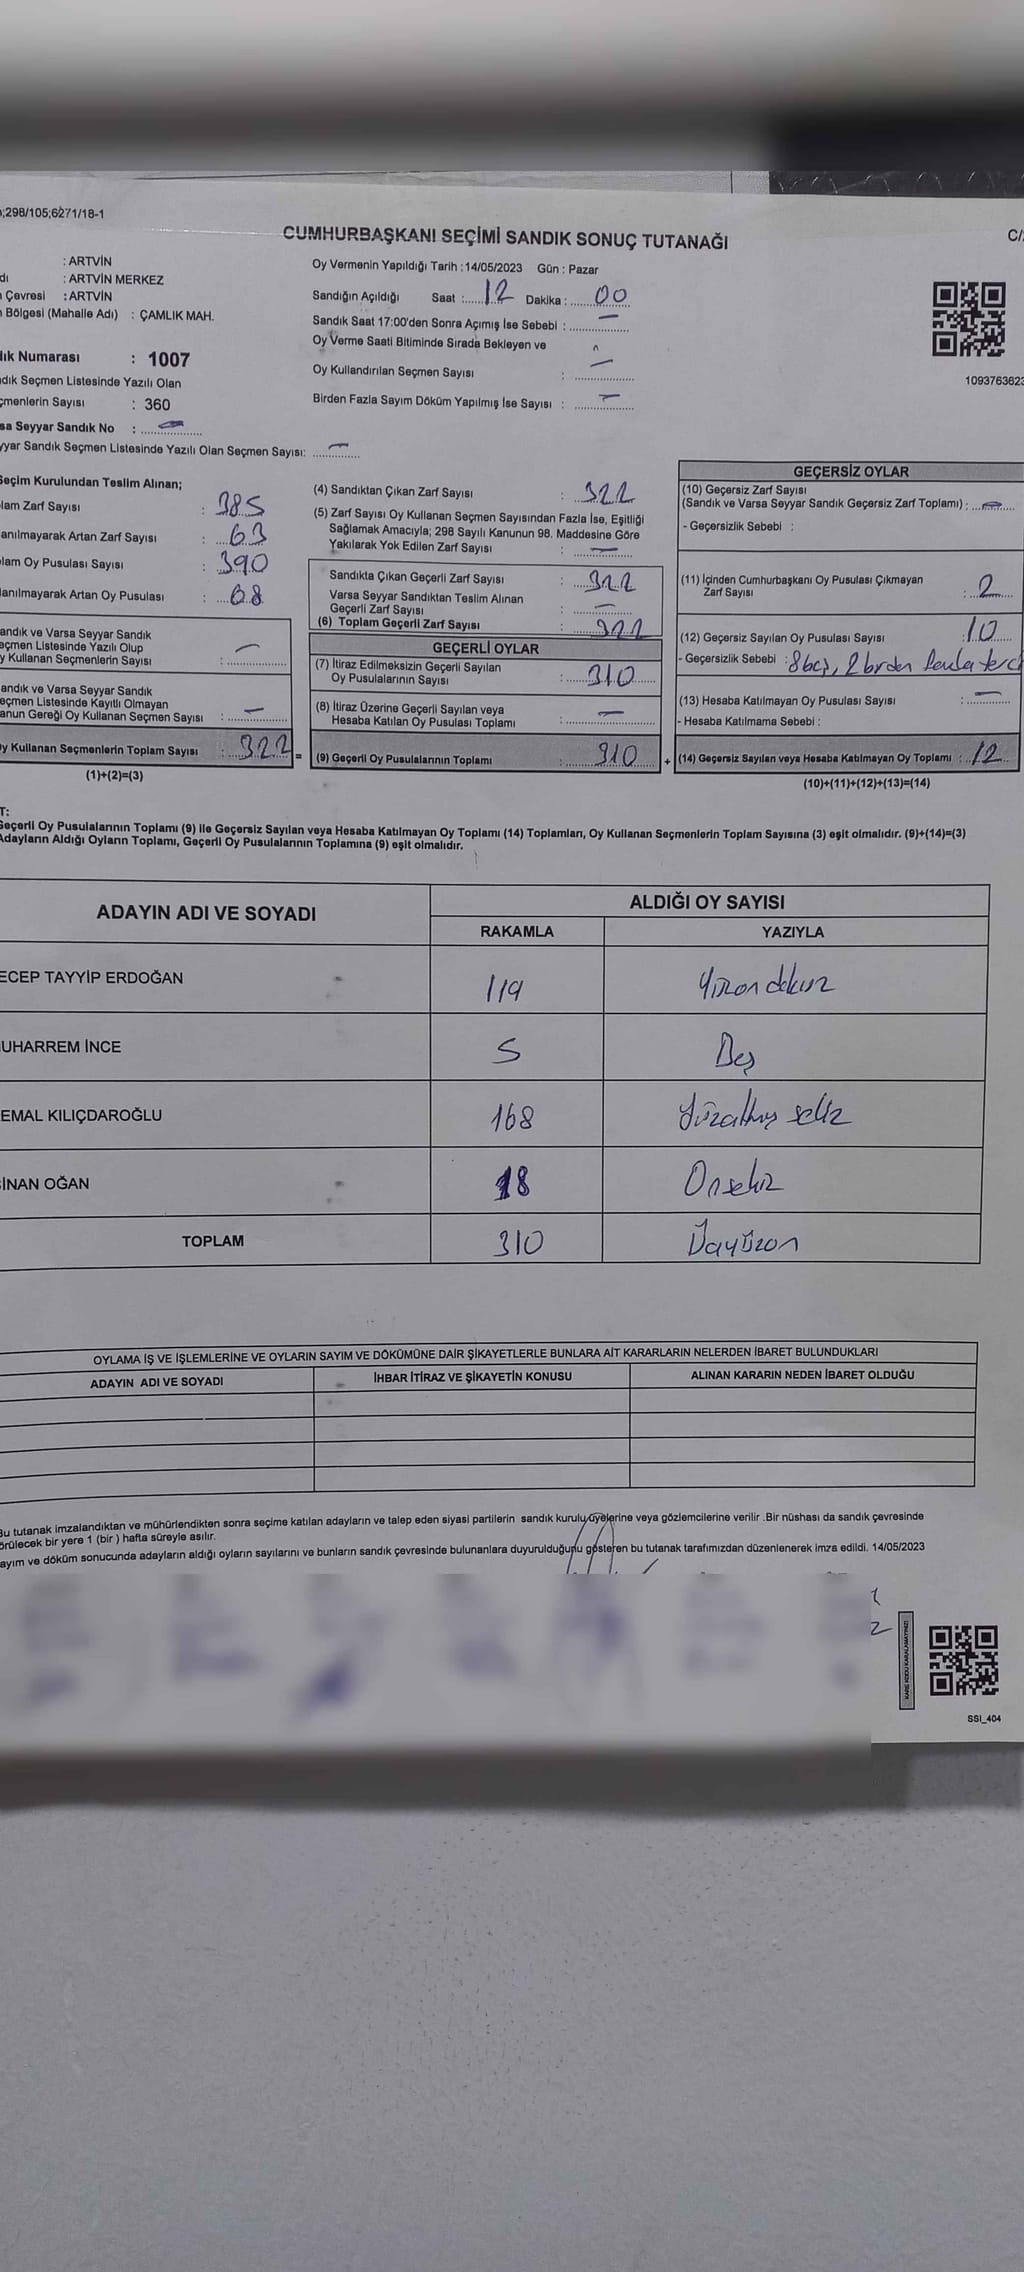 ;298/105;6271/18-1
CUMHURBAŞKANI SEÇİMİ SANDIK SONUÇ TUTANAĞI
C/
: ARTVİN
: ARTVİN MERKEZ
Çevresi : ARTVİN
Bölgesi (Mahalle Adı) : ÇAMLIK MAH.
Numarası : 1007
Seçmen Listesinde Yazılı Olan
Sayısı : 360
Seyyar Sandık No :
Sandık Seçmen Listesinde Yazılı Olan Seçmen Sayısı:
Oy Vermenin Yapıldığı Tarih : 14/05/2023 Gün : Pazar
Sandığın Açıldığı Saat : 12 Dakika : 00
Sandık Saat 17:00'den Sonra Açımış İse Sebebi : —
Oy Verme Saati Bitiminde Sırada Bekleyen ve
Oy Kullandırılan Seçmen Sayısı : —
Birden Fazla Sayım Döküm Yapılmış İse Sayısı : —
1093763623
Seçim Kurulundan Teslim Alınan;
Zarf Sayısı : 385
Artan Zarf Sayısı : 63
Oy Pusulası Sayısı : 390
Artan Oy Pusulası : 68
ve Varsa Seyyar Sandık
Listesinde Yazılı Olup
Kullanan Seçmenlerin Sayısı : —
ve Varsa Seyyar Sandık
Listesinde Kayıtlı Olmayan
Gereği Oy Kullanan Seçmen Sayısı : —
Kullanan Seçmenlerin Toplam Sayısı : 322 =
(1)+(2)=(3)
(4) Sandıktan Çıkan Zarf Sayısı : 322
(5) Zarf Sayısı Oy Kullanan Seçmen Sayısından Fazla İse, Eşitliği
Sağlamak Amacıyla; 298 Sayılı Kanunun 98. Maddesine Göre
Yakılarak Yok Edilen Zarf Sayısı : —
Sandıkta Çıkan Geçerli Zarf Sayısı : 322
Varsa Seyyar Sandıktan Teslim Alınan
Geçerli Zarf Sayısı : —
(6) Toplam Geçerli Zarf Sayısı : 322
GEÇERLİ OYLAR
(7) İtiraz Edilmeksizin Geçerli Sayılan
Oy Pusulalarının Sayısı : 310
(8) İtiraz Üzerine Geçerli Sayılan veya
Hesaba Katılan Oy Pusulası Toplamı : —
(9) Geçerli Oy Pusulalarının Toplamı : 310 +
GEÇERSİZ OYLAR
(10) Geçersiz Zarf Sayısı
(Sandık ve Varsa Seyyar Sandık Geçersiz Zarf Toplamı) :
- Geçersizlik Sebebi :
(11) İçinden Cumhurbaşkanı Oy Pusulası Çıkmayan
Zarf Sayısı : 2
(12) Geçersiz Sayılan Oy Pusulası Sayısı : 10
- Geçersizlik Sebebi : 8 boş, 2 birden fazla terci
(13) Hesaba Katılmayan Oy Pusulası Sayısı : —
- Hesaba Katılmama Sebebi :
(14) Geçersiz Sayılan veya Hesaba Katılmayan Oy Toplamı : 12
(10)+(11)+(12)+(13)=(14)
T:
Geçerli Oy Pusulalarının Toplamı (9) ile Geçersiz Sayılan veya Hesaba Katılmayan Oy Toplamı (14) Toplamları, Oy Kullanan Seçmenlerin Toplam Sayısına (3) eşit olmalıdır. (9)+(14)=(3)
Adayların Aldığı Oyların Toplamı, Geçerli Oy Pusulalarının Toplamına (9) eşit olmalıdır.
ADAYIN ADI VE SOYADI
ALDIĞI OY SAYISI
RAKAMLA YAZIYLA
ECEP TAYYİP ERDOĞAN 119 Yüzon dokuz
UHARREM İNCE 5 Beş
EMAL KILIÇDAROĞLU 168 Yüzaltmış sekiz
İNAN OĞAN 18 Onsekiz
TOPLAM 310 Üçyüzon
OYLAMA İŞ VE İŞLEMLERİNE VE OYLARIN SAYIM VE DÖKÜMÜNE DAİR ŞİKAYETLERLE BUNLARA AİT KARARLARIN NELERDEN İBARET BULUNDUKLARI
ADAYIN ADI VE SOYADI İHBAR İTİRAZ VE ŞİKAYETİN KONUSU ALINAN KARARIN NEDEN İBARET OLDUĞU
Bu tutanak imzalandıktan ve mühürlendikten sonra seçime katılan adayların ve talep eden siyasi partilerin sandık kurulu üyelerine veya gözlemcilerine verilir .Bir nüshası da sandık çevresinde
örülecek bir yere 1 (bir ) hafta süreyle asılır.
ayım ve döküm sonucunda adayların aldığı oyların sayılarını ve bunların sandık çevresinde bulunanlara duyurulduğunu gösteren bu tutanak tarafımızdan düzenlenerek imza edildi. 14/05/2023
KARE KODU KARALAMAYINIZ!
SSI_404